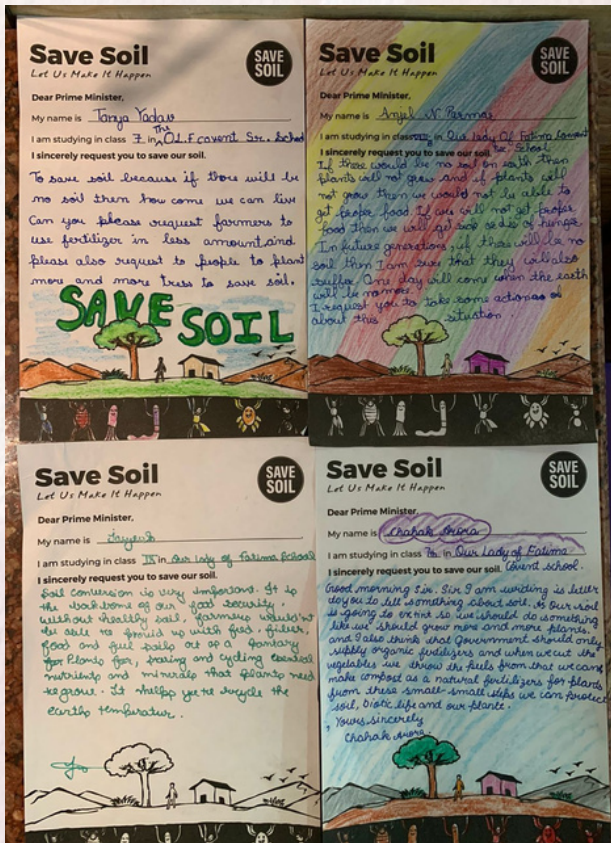 Save Soil
Let Us Make It Happen
SAVE
SOIL
Dear Prime Minister,
My name is Tanya Yadav
I am studying in class 7 in The O.L.F covent Sr. School
I sincerely request you to save our soil.
To save soil because if there will be
no soil then how come we can live
Can you please request farmers to
use fertilizer in less amount and
please also request to people to plant
more and more tress to save soil.
SAVE SOIL
Save Soil
Let Us Make It Happen
SAVE
SOIL
Dear Prime Minister,
My name is Anjel N Parmar
I am studying in class in Our Lady Of Fatima Convent
I sincerely request you to save our soil. Sec School
If there would be no soil on earth then
plants will not grow and if plants will
not grow then we would not be able to
get proper food. If we will not get proper
food then we will get of hunger
In future generations, if there will be no
soil then I am sure that they will also
suffer One day will come when the earth
will be no more.
I request you to take some action
about this situation
Save Soil
Let Us Make It Happen
SAVE
SOIL
Dear Prime Minister,
My name is
I am studying in class IX in Our Lady of Fatima School
I sincerely request you to save our soil.
Soil conversion is very important. It is
the of our food security.
without healthy soil, farmers wouldn't
be able to up with feed, fiber,
food and fuel soils act as a pantary
for plants for, and cycling
nutrients and minerals that plants need
to grow. It helps recycle the
earths temperatur.
Save Soil
Let Us Make It Happen
SAVE
SOIL
Dear Prime Minister,
My name is Chahak Arora
I am studying in class in Our Lady of Fatima
I sincerely request you to save our soil. Covent school.
Good morning Sir. Sir I am writing is letter
to you to tell something about soil. As our soil
is going to so we should do something
like we should grow more and more plants.
and I also think that Government should only
supply organic and when we cut the
vegetables we throw the peels from that we can
make compost as a natural fertilizers for plants
from these small-small steps we can protect
soil, biotic life and our plants.
Yours sincerely
Chahak Arora.